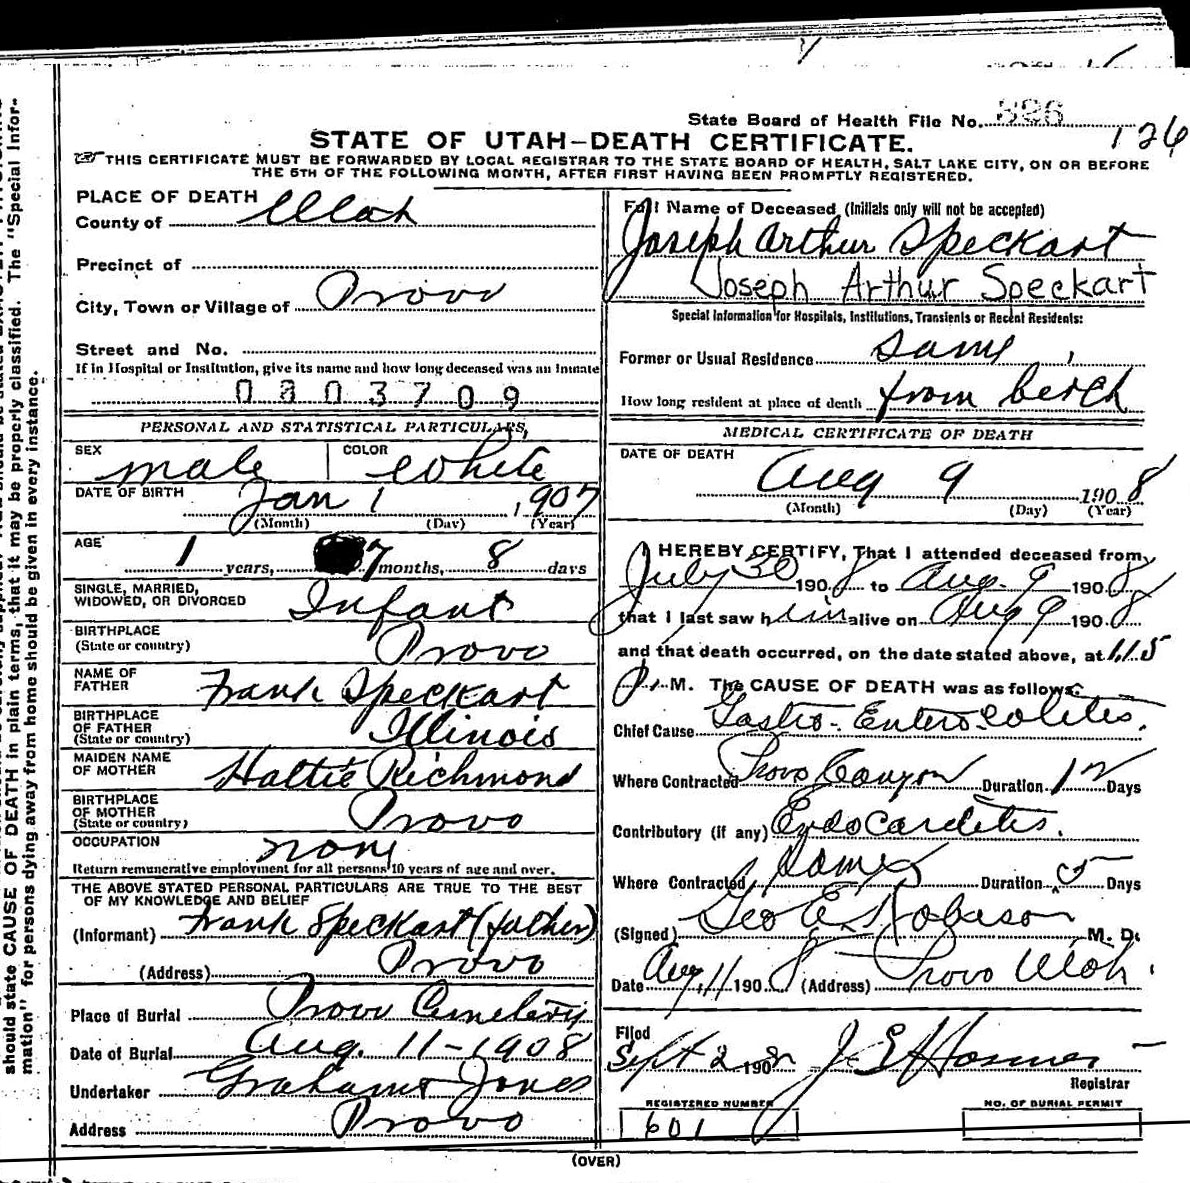 State Board of Health File No. 326
126
STATE OF UTAH–DEATH CERTIFICATE.
THIS CERTIFICATE MUST BE FORWARDED BY LOCAL REGISTRAR TO THE STATE BOARD OF HEALTH, SALT LAKE CITY, ON OR BEFORE
THE 5TH OF THE FOLLOWING MONTH, AFTER FIRST HAVING BEEN PROMPTLY REGISTERED.
PLACE OF DEATH
County of Utah
Precinct of
City, Town or Village of Provo
Street and No.
If in Hospital or Institution, give its name and how long deceased was an Inmate
0803709
PERSONAL AND STATISTICAL PARTICULARS,
SEX male COLOR White
DATE OF BIRTH Jan 1, 1907
(Month) (Day) (Year)
AGE 1 years, 7 months, 8 days
SINGLE, MARRIED,
WIDOWED, OR DIVORCED Infant
BIRTHPLACE
(State or country) Provo
NAME OF
FATHER Frank Speckart
BIRTHPLACE
OF FATHER
(State or country) Illinois
MAIDEN NAME
OF MOTHER Hattie Richmond
BIRTHPLACE
OF MOTHER
(State or country) Provo
OCCUPATION none
Return remunerative employment for all persons 10 years of age and over.
THE ABOVE STATED PERSONAL PARTICULARS ARE TRUE TO THE BEST
OF MY KNOWLEDGE AND BELIEF
(Informant) Frank Speckart (father)
(Address) Provo
Place of Burial Provo Cemetery
Date of Burial Aug. 11-1908
Undertaker Graham & Jones
Address Provo
Full Name of Deceased (Initials only will not be accepted)
Joseph Arthur Speckart
Joseph Arthur Speckart
Special Information for Hospitals, Institutions, Transients or Recent Residents:
Former or Usual Residence Same
How long resident at place of death from berth
MEDICAL CERTIFICATE OF DEATH
DATE OF DEATH
Aug 9 1908
(Month) (Day) (Year)
I HEREBY CERTIFY, That I attended deceased from
July 30 1908 to Aug. 9 1908
that I last saw him alive on Aug 9 1908
and that death occurred, on the date stated above, at 1.15
P. M. The CAUSE OF DEATH was as follows:
Chief Cause Gastro-Enterocolitis.
Where Contracted Provo Canyon Duration 12 Days
Contributory (if any) Endocarditis.
Where Contracted Duration 5 Days
(Signed) Geo E Robison M. D.
Date Aug 11 1908 (Address) Provo Utah.
Filed
Sept 2 1908 J. E. Hosmer
Registrar
REGISTERED NUMBER
601
NO. OF BURIAL PERMIT
(OVER)
should state CAUSE OF DEATH in plain terms, that it may be properly classified. The "Special Infor-
mation" for persons dying away from home should be given in every instance.